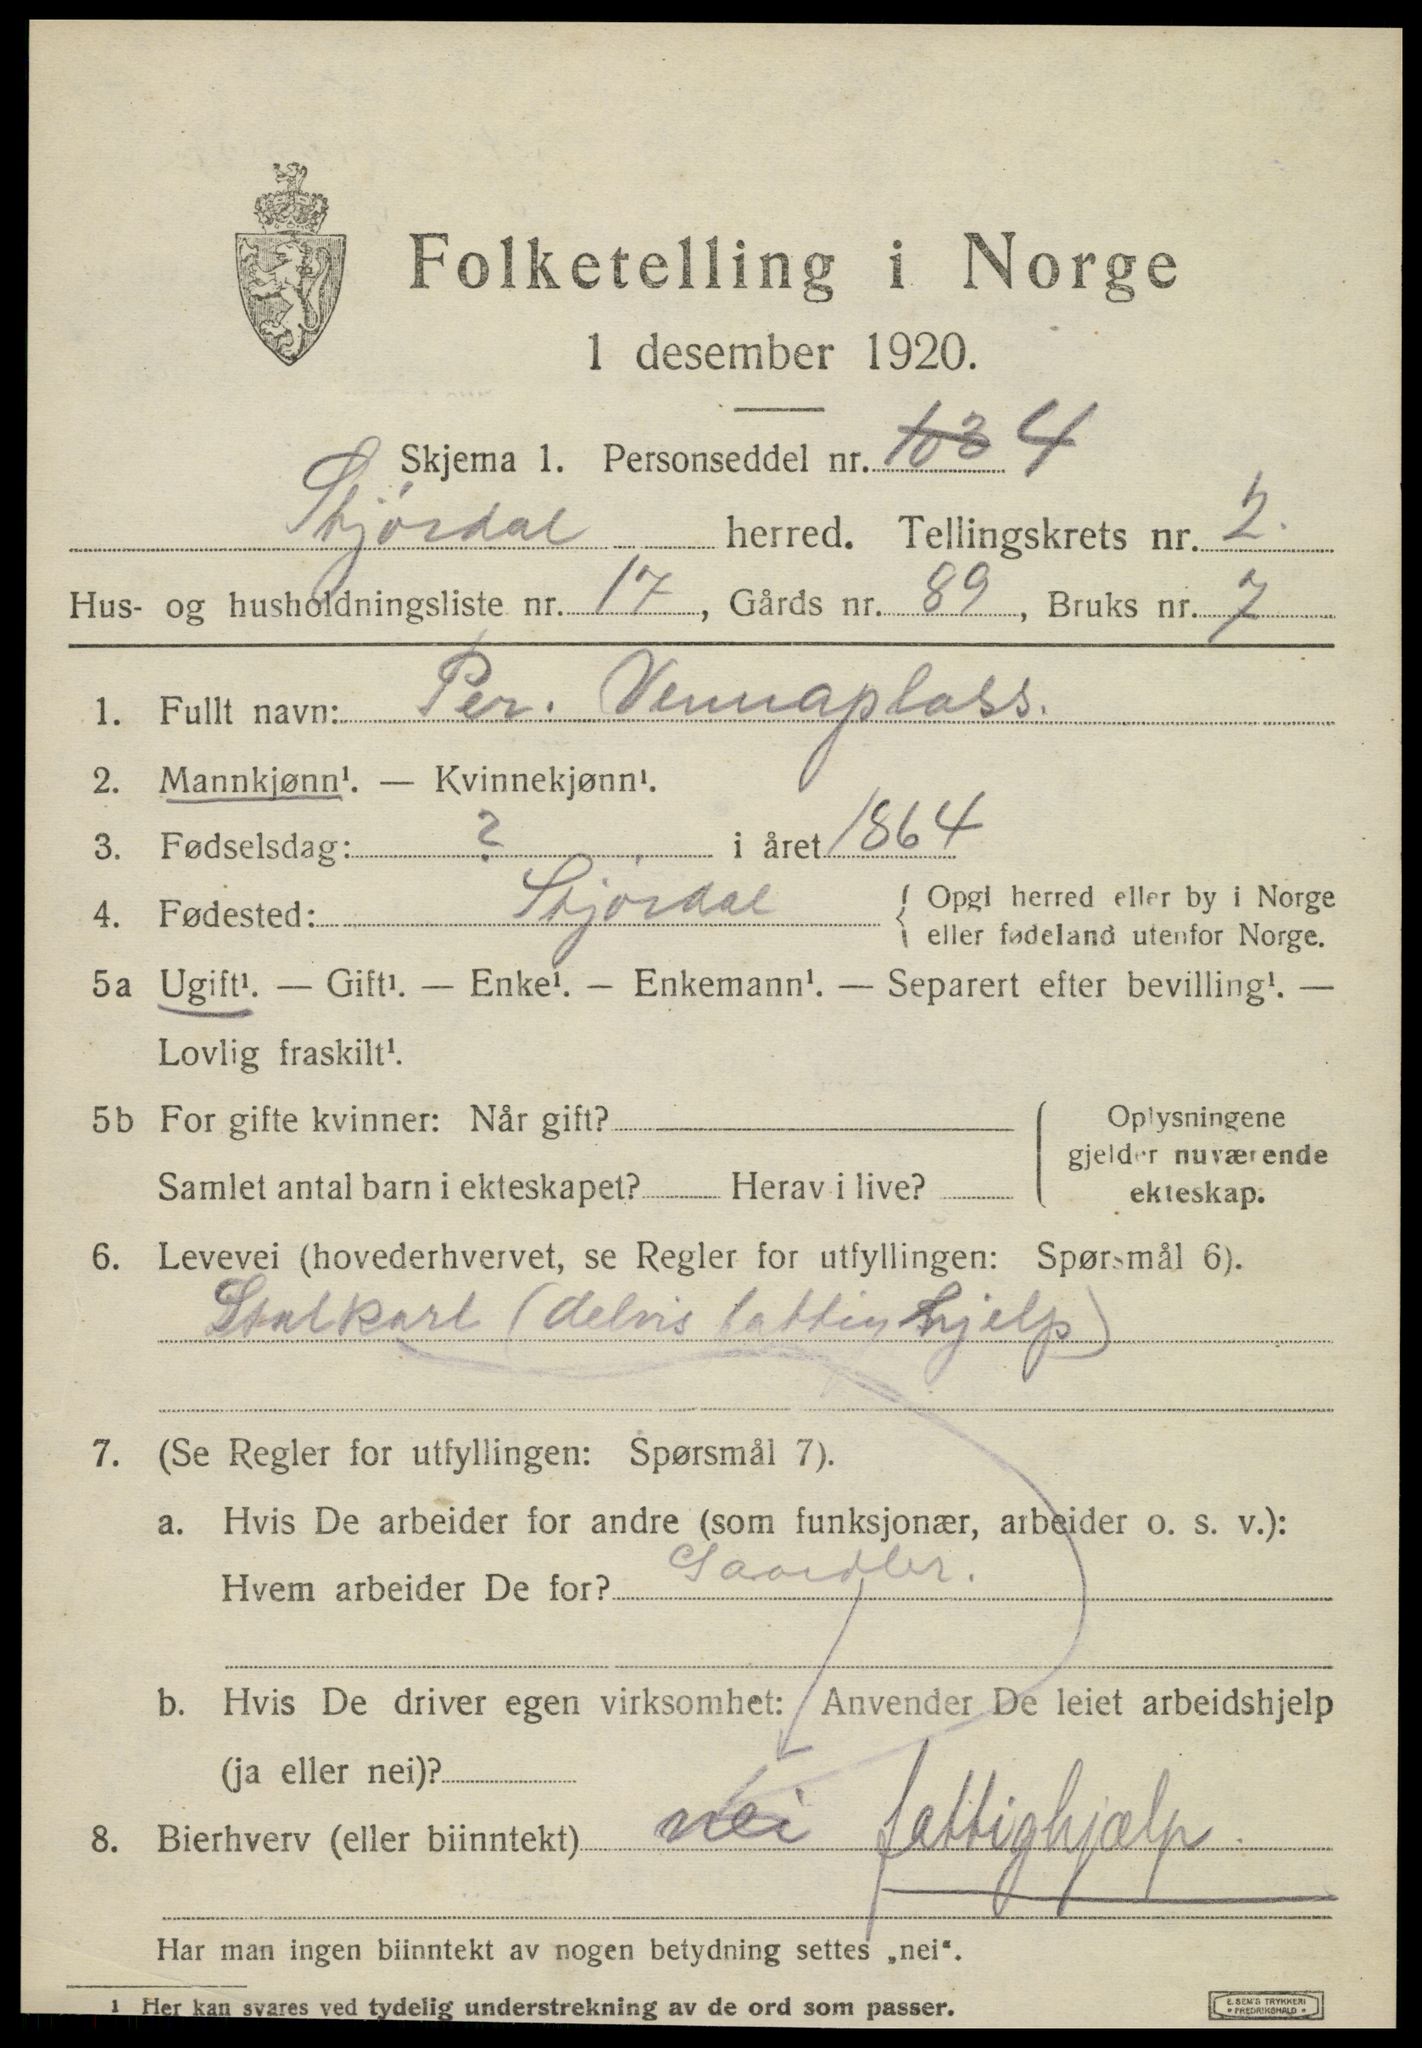 Folketelling i Norge
1 desember 1920.
Skjema 1. Personseddel nr. 103 4
Stjørdal herred. Tellingskrets nr. 2.
Hus- og husholdningsliste nr. 17, Gårds nr. 89, Bruks nr. 7
1. Fullt navn: Per. Vennaplass.
2. Mannkjønn¹. — Kvinnekjønn¹.
3. Fødselsdag: ? i året 1864
4. Fødested: Stjørdal { Opgi herred eller by i Norge
eller fødeland utenfor Norge.
5a Ugift¹. — Gift¹. — Enke¹. — Enkemann¹. — Separert efter bevilling¹. —
Lovlig fraskilt¹.
5b For gifte kvinner: Når gift?
Samlet antal barn i ekteskapet? Herav i live?
Oplysningene
gjelder nuværende
ekteskap.
6. Levevei (hovederhvervet, se Regler for utfyllingen: Spørsmål 6).
Stalkarl (delvis fattighjelp)
7. (Se Regler for utfyllingen: Spørsmål 7).
a. Hvis De arbeider for andre (som funksjonær, arbeider o. s. v.):
Hvem arbeider De for?
b. Hvis De driver egen virksomhet: Anvender De leiet arbeidshjelp
(ja eller nei)?
8. Bierhverv (eller biinntekt) nei fattighjælp.
Har man ingen biinntekt av nogen betydning settes „nei“.
1 Her kan svares ved tydelig understrekning av de ord som passer.
E. SEM'S TRYKKERI
* FREDRIKSHALD *